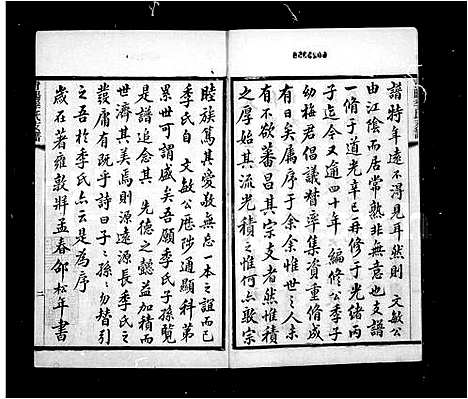 譜特年遠不得見耳然則 文敏公
由江陰而居常熟非無意也支譜
一脩于道光辛巳再修于光緒丙
子迄今又逾四十年 編修公季子
幼梅君倡議督率集資重脩成
有日矣屬序于余余惟世之人未
有不欲蕃昌其宗支者然惟積
之厚始其流光積之惟何亦敦宗
睦族篤其愛敬無忘一本之誼而已
季氏自 文敏公歷陟通顯科第
累世可謂盛矣吾願季氏子孫覽
是譜追念其 先德之懿益加積而
世濟其美焉則源遠源長季氏之
蕟庸有既乎詩曰子子孫孫勿替引
之吾於季氏亦云是為序
歲在著雍敦牂孟春邵松年書